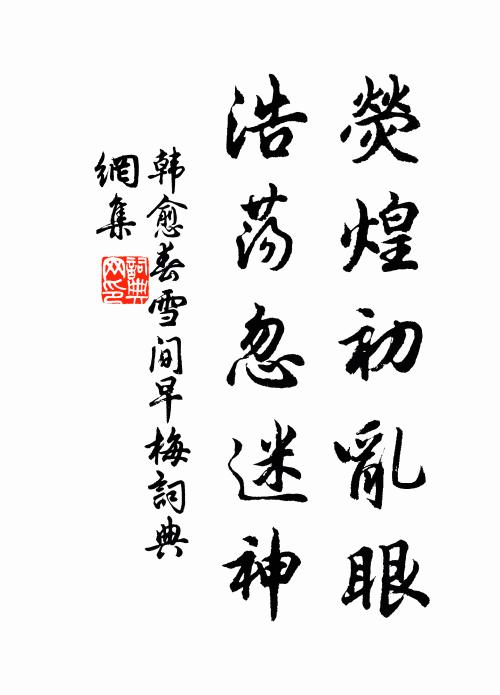 熒煌初亂眼
浩蕩忽迷神
韩愈春雪间早梅詞典
網集
詞典
网印